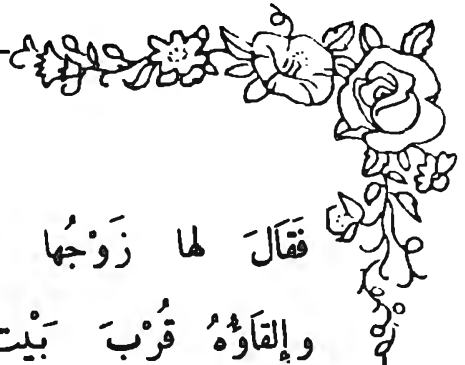 فَقَالَ لها زَوْجُها
وإلقَاؤُهُ قُرْبَ بَيْت